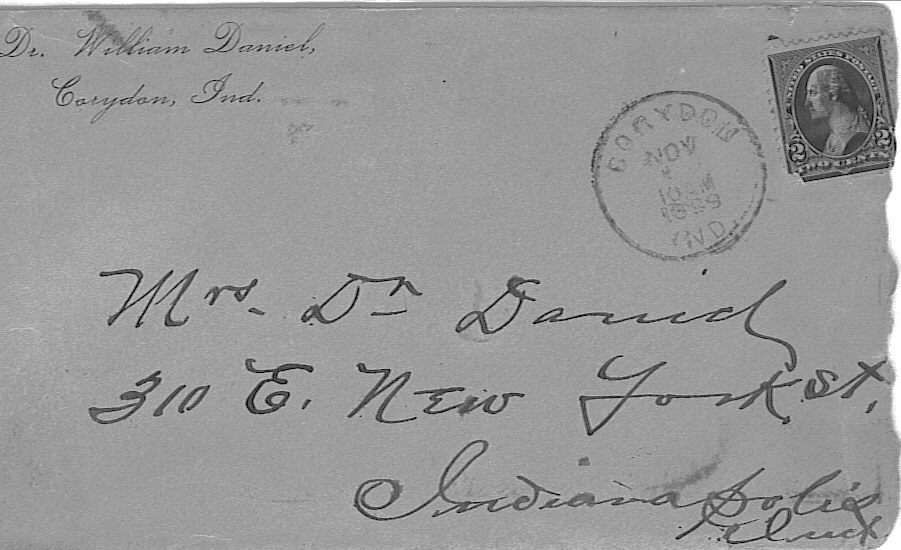 Dr. William Daniel,
Corydon, Ind.
UNITED STATES POSTAGE
2 2
TWO CENTS
CORYDON
NOV
10 AM
1899
IND.
Mrs. Dr Daniel
310 E. New York St,
Indianapolis
Ind